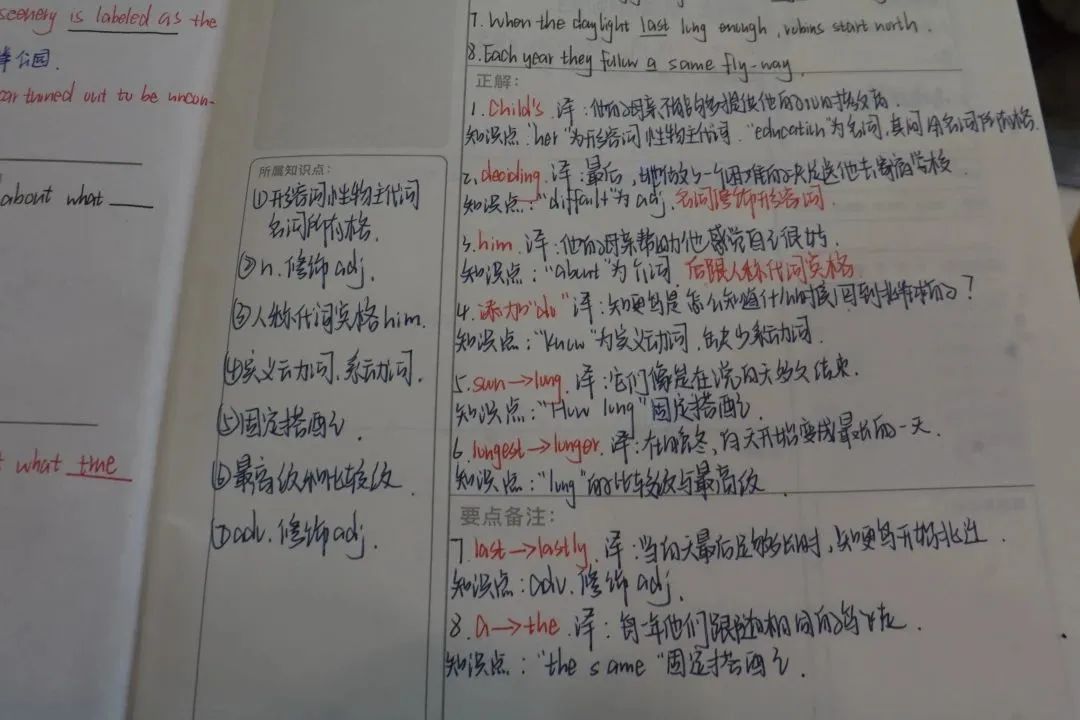 scenery is labeled as the
公园.
car turned out to be uncon-
about what
what true
所属知识点:
①形容词性物主代词
名词所有格.
②n.修饰adj.
③人称代词宾格him.
④实义云力词,系动词.
⑤固定搭配.
⑥最高级和比较级.
⑦adv.修饰adj.
7. When the daylight last long enough, robins start north.
8. Each year they follow a same fly-way.
正解:
1. Child's. 译:他的母亲不能够提供他的儿的教育.
知识点:"her"为形容词性物主代词. "education"为名词,其间用名词所有格.
2. deciding. 译:最后,她做了一个困难的决定送他去寄宿学校
知识点:"difficult"为adj. 名词修饰形容词.
3. him. 译:他的母亲帮助他感觉自己很好.
知识点:"about"为介词. 后跟人称代词宾格
4. 添加"do" 译:知更鸟是怎么知道什么时候回到北的?
知识点:"know"为实义动词,缺少系动词.
5. swn→long. 译:它们像是在说白天多久结束.
知识点:"How long"固定搭配.
6. longest→longer. 译:在冬,白天开始变成最长的一天.
知识点:"long"的比较级与最高级.
要点备注:
7. last→lastly. 译:当白天最后足够长时,知更鸟开始北迁.
知识点:adv.修饰adj.
8. a→the. 译:每年他们跟随相同的鸟.
知识点:"the same"固定搭配.